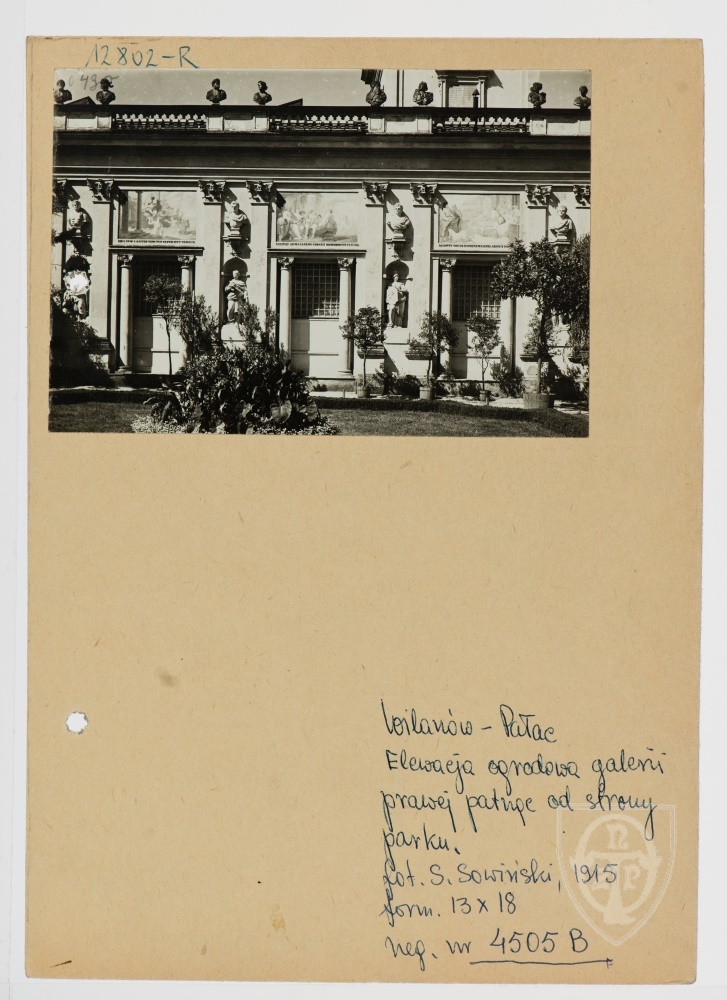 12802-R
Wilanów - Pałac
Elewacja ogrodowa galerii
prawej patrząc od strony
parku.
fot. S. Sowiński, 1915
form. 13 x 18
neg. nr 4505 B